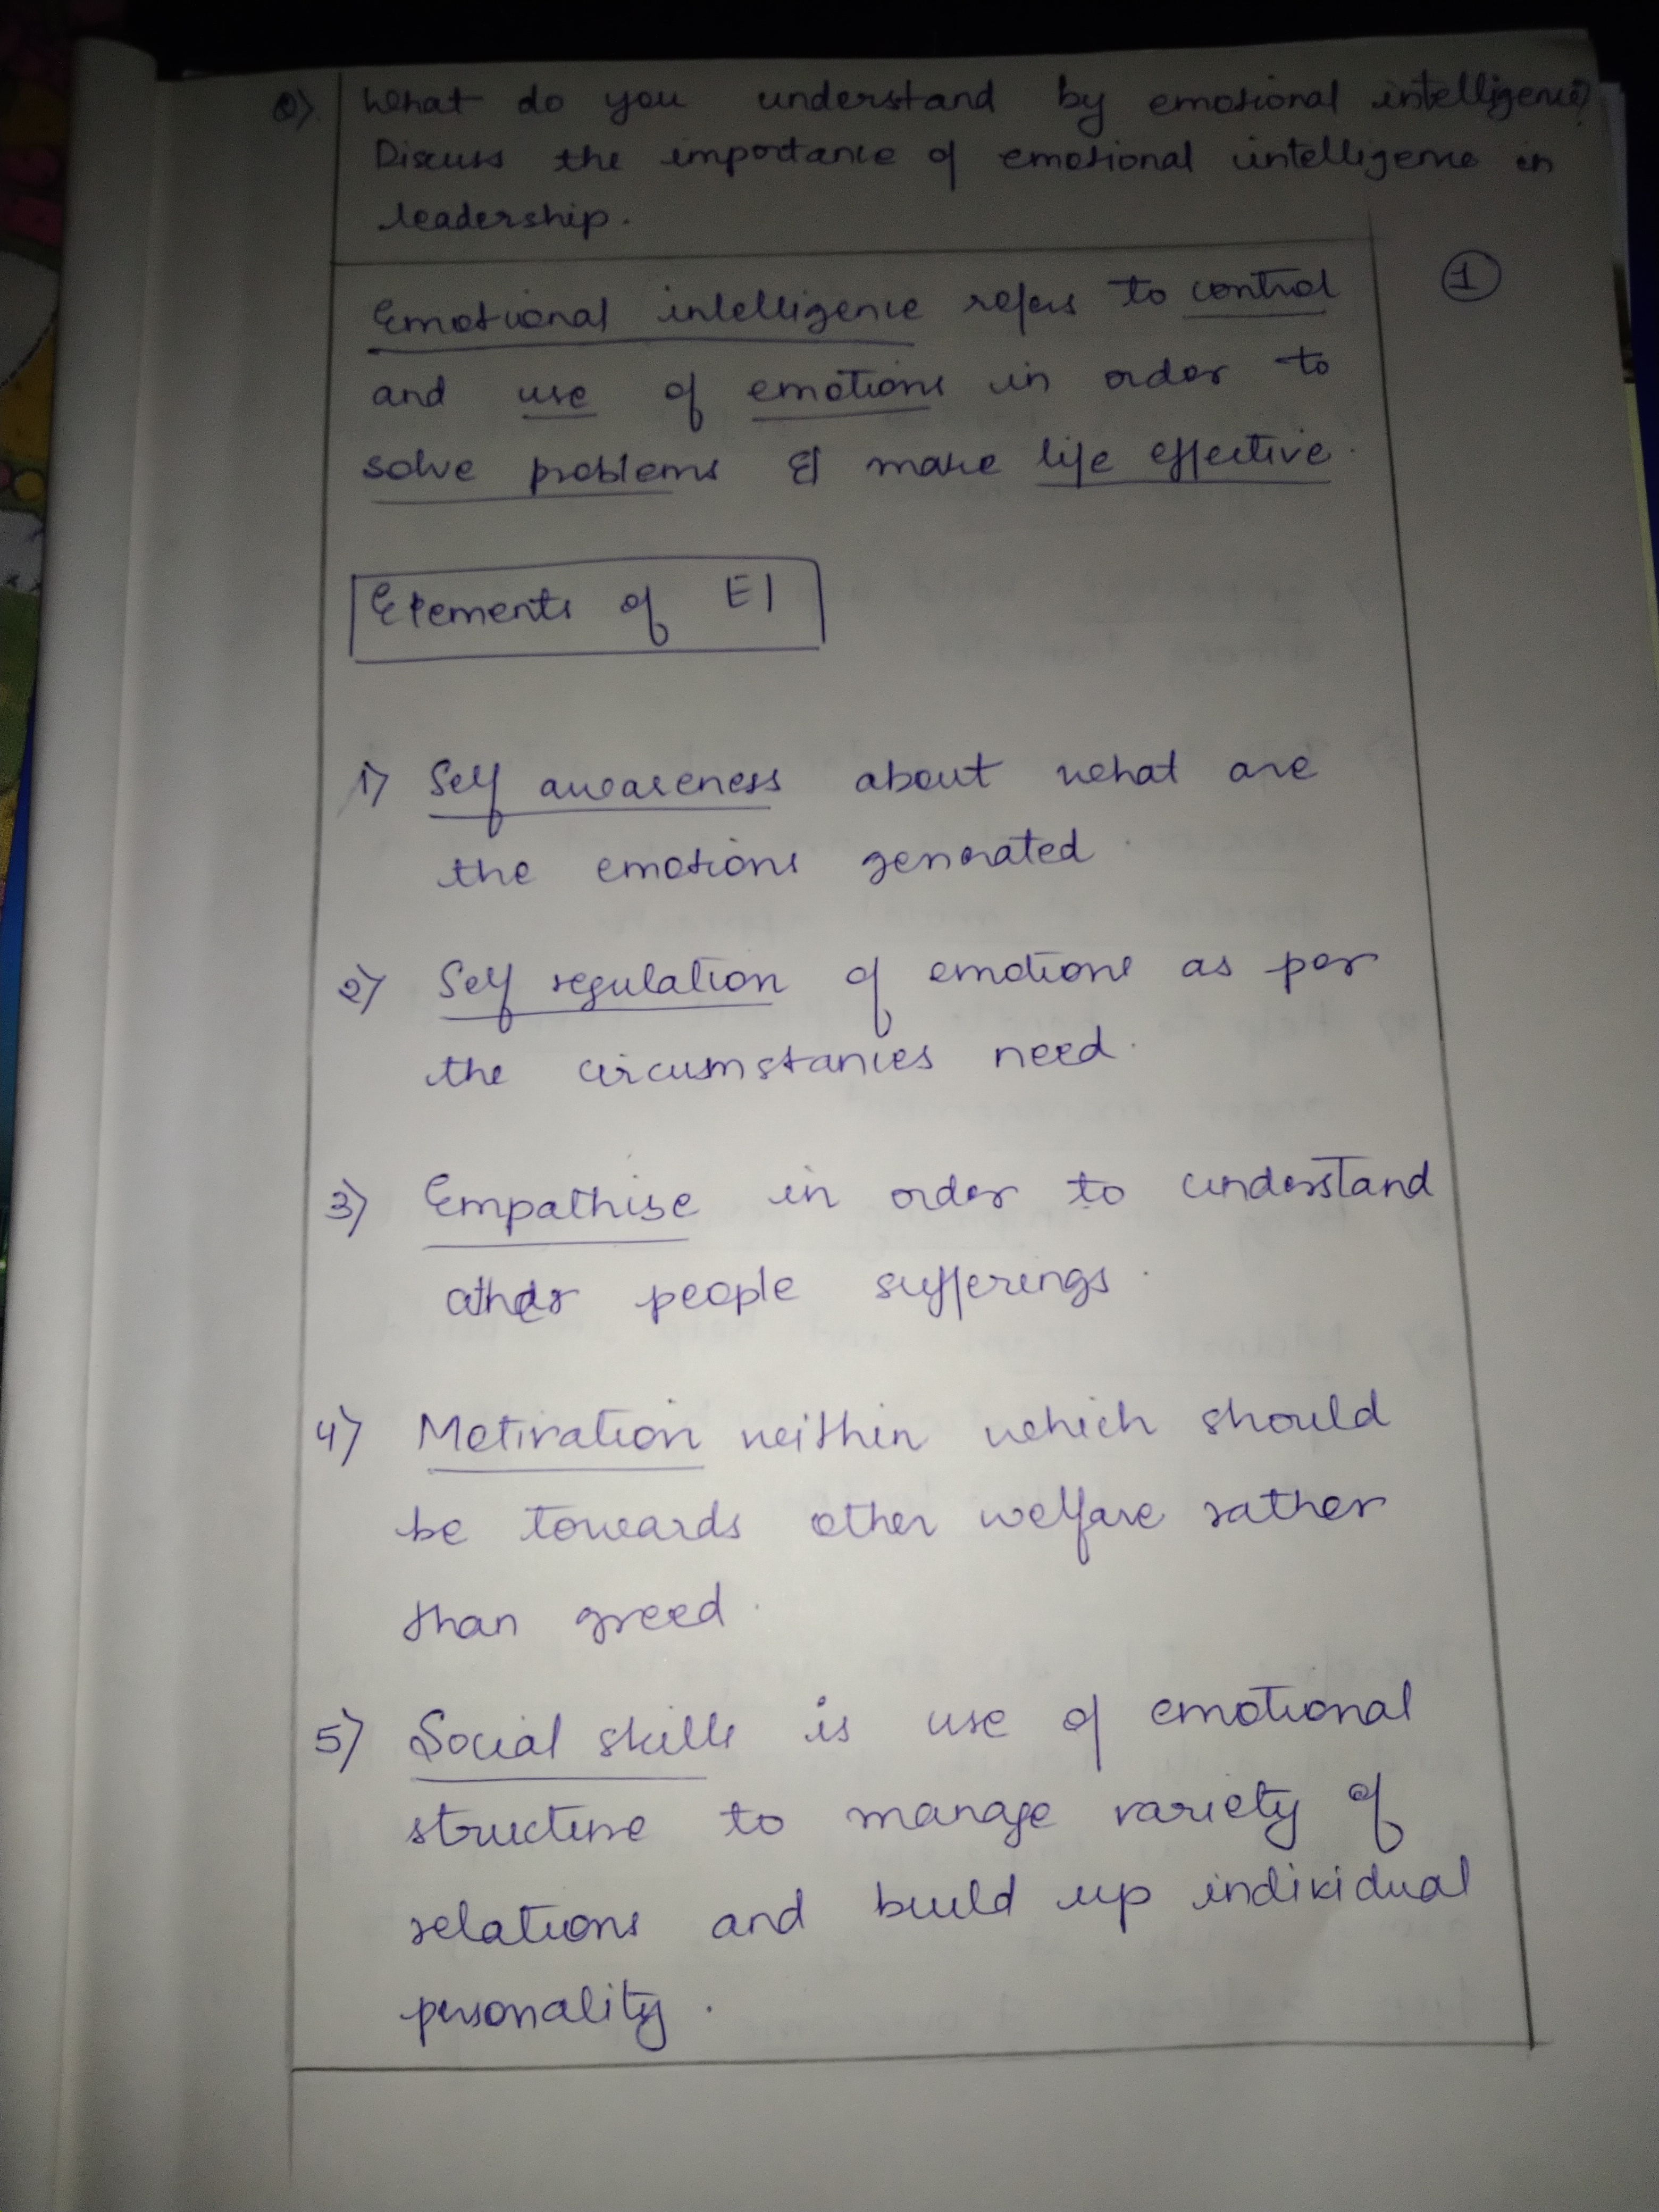 Q). What do you understand by emotional intelligence?
Discuss the importance of emotional intelligence in
leadership.
1
Emotional intelligence refers to control
and use of emotions in order to
solve problems & make life effective.
Elements of EI
1) Self awareness about what are
the emotions generated.
2) Self regulation of emotions as per
the circumstances need.
3) Empathise in order to understand
other people sufferings.
4) Motivation within which should
be towards other welfare rather
than greed.
5) Social skills is use of emotional
structure to manage variety of
relations and build up individual
personality.